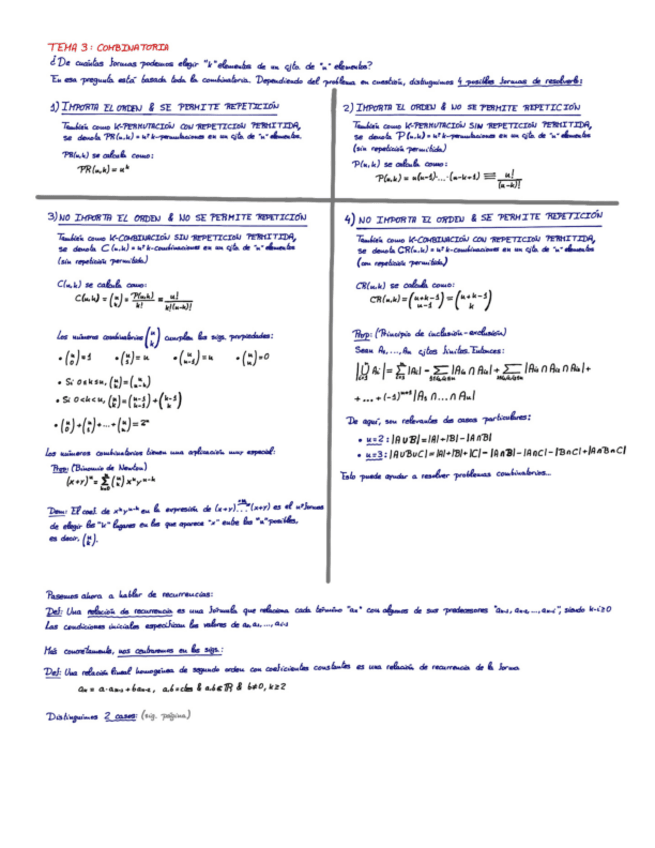 TEMA 3: COMBINATORIA
¿De cuántas formas podemos elegir "k" elementos de un cjto. de "n" elementos?
En esa pregunta está basada toda la combinatoria. Dependiendo del problema en cuestión, distinguimos 4 posibles formas de resolverlo:
1) IMPORTA EL ORDEN & SE PERMITE REPETICIÓN
También como K-PERMUTACIÓN CON REPETICIÓN PERMITIDA,
se denota PR(n,k) = nº k-permutaciones en un cjto. de "n" elementos
PR(n,k) se calcula como:
PR(n,k) = n^k
2) IMPORTA EL ORDEN & NO SE PERMITE REPETICIÓN
También como K-PERMUTACIÓN SIN REPETICIÓN PERMITIDA,
se denota P(n,k) = nº k-permutaciones en un cjto. de "n" elementos
(sin repetición permitida)
P(n,k) se calcula como:
P(n,k) = n(n-1)·...·(n-k+1) ≡ n!/(n-k)!
3) NO IMPORTA EL ORDEN & NO SE PERMITE REPETICIÓN
También como K-COMBINACIÓN SIN REPETICIÓN PERMITIDA,
se denota C(n,k) = nº k-combinaciones en un cjto. de "n" elementos
(sin repetición permitida)
C(n,k) se calcula como:
C(n,k) = (n k) = P(n,k)/k! = n!/k!(n-k)!
Los números combinatorios (n k) cumplen las sigs. propiedades:
• (n 0) = 1 • (n 1) = n • (n n-1) = n
• Si 0≤k≤n, (n k) = (n n-k)
• Si 0<k<n, (n k) = (n-1 k-1) + (n-1 k)
• (n 0) + (n 1) + ... + (n n) = 2^n
Los números combinatorios tienen una aplicación muy especial:
Prop: (Binomio de Newton)
(x+y)^n = Σ (n k) x^k y^n-k
Dem: El coef. de x^k y^n-k en la expresión de (x+y)...(x+y) es el nº formas
de elegir los "k" lugares en los que aparece "x" entre los "n" posibles,
es decir, (n k).
4) NO IMPORTA EL ORDEN & SE PERMITE REPETICIÓN
También como K-COMBINACIÓN CON REPETICIÓN PERMITIDA,
se denota CR(n,k) = nº k-combinaciones en un cjto. de "n" elementos
(con repetición permitida)
CR(n,k) se calcula como:
CR(n,k) = (n+k-1 n-1) = (n+k-1 k)
Prop: (Principio de inclusión-exclusión)
Sean A₁,...,An cjtos finitos. Entonces:
+ ... + (-1)^n+1 |A₁ ∩ ... ∩ An|
De aquí, son relevantes dos casos particulares:
• n=2: |A∪B| = |A|+|B|-|A∩B|
• n=3: |A∪B∪C| = |A|+|B|+|C|-|A∩B|-|A∩C|-|B∩C|+|A∩B∩C|
Esto puede ayudar a resolver problemas combinatorios...
Pasemos ahora a hablar de recurrencias:
Def: Una relación de recurrencia es una fórmula que relaciona cada término "an" con algunos de sus predecesores
Las condiciones iniciales especifican los valores de
Más concretamente, nos centraremos en las sigs.:
Def: Una relación lineal homogénea de segundo orden con coeficientes constantes es una relación de recurrencia de la forma
Distinguimos 2 casos: (sig. página)